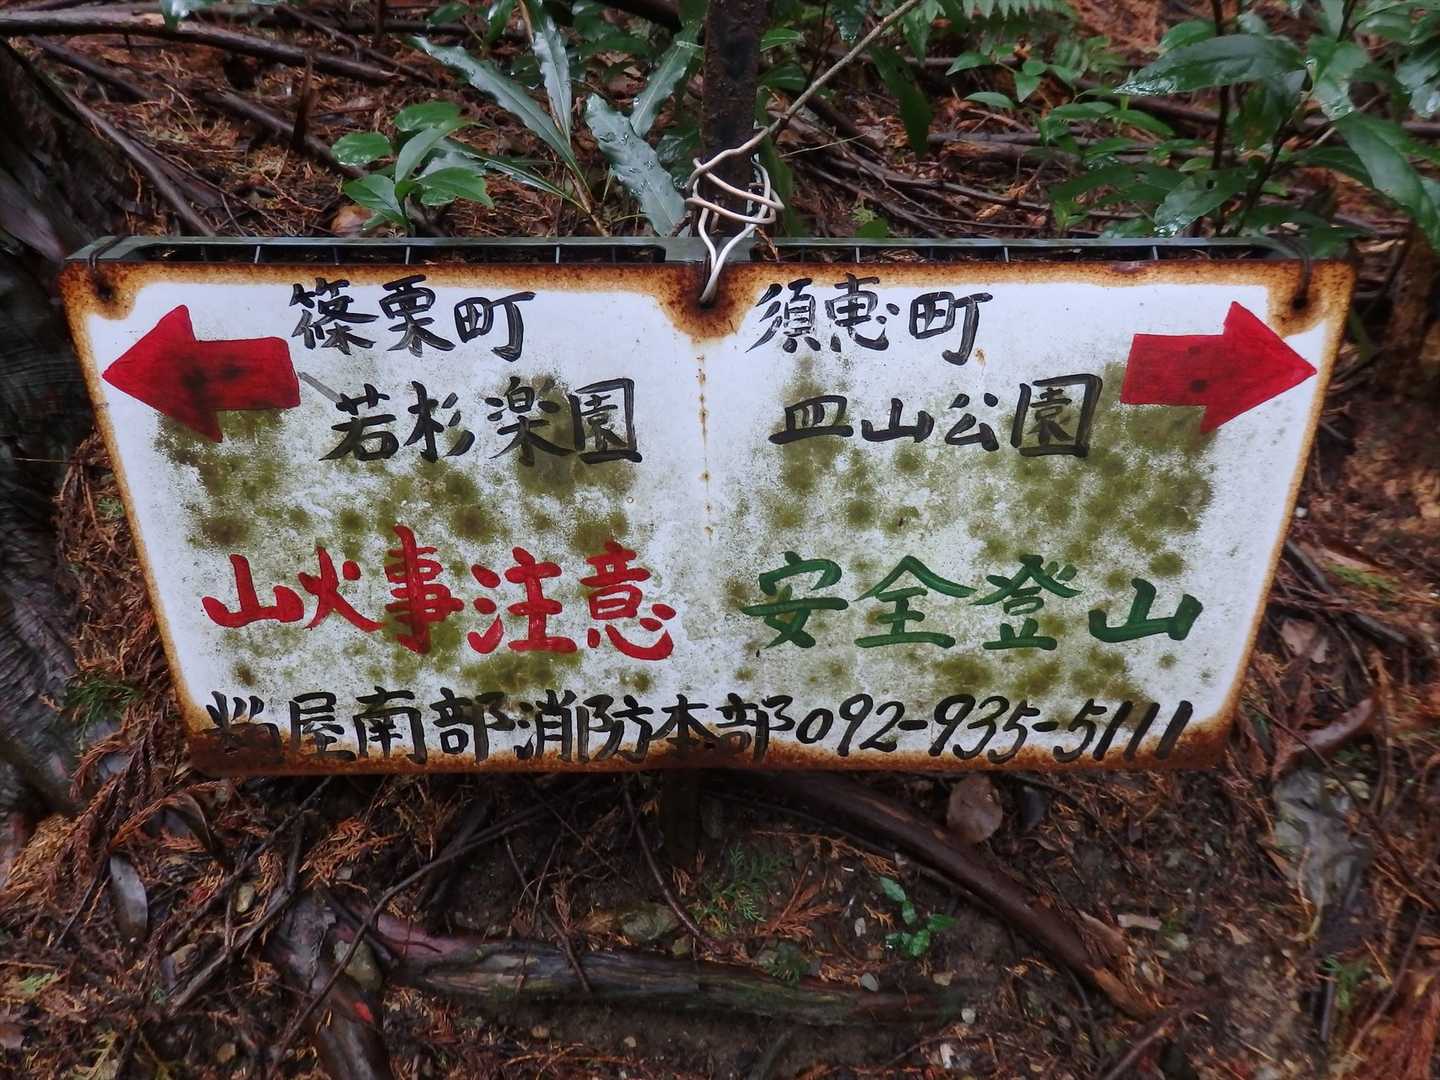 篠栗町
若杉楽園
須恵町
皿山公園
山火事注意
安全登山
粕屋南部消防本部092-935-5111